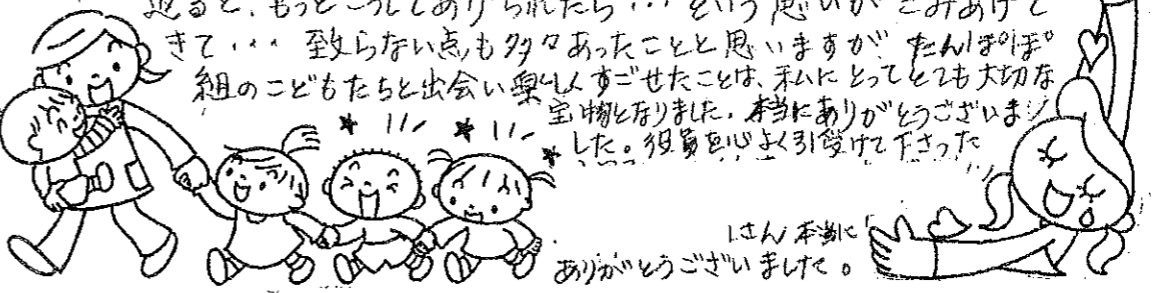 迫ると、もっとこうしてあげられたら・・・という思いがこみあげて
きて・・・ 至らない点も多々あったことと思いますが、たんぽぽ
組のこどもたちと出会い楽しくすごせたことは、私にとってとても大切な
宝物となりました。本当にありがとうございま
した。役員を心よく引受けて下さった
さん 本当に
ありがとうございました。